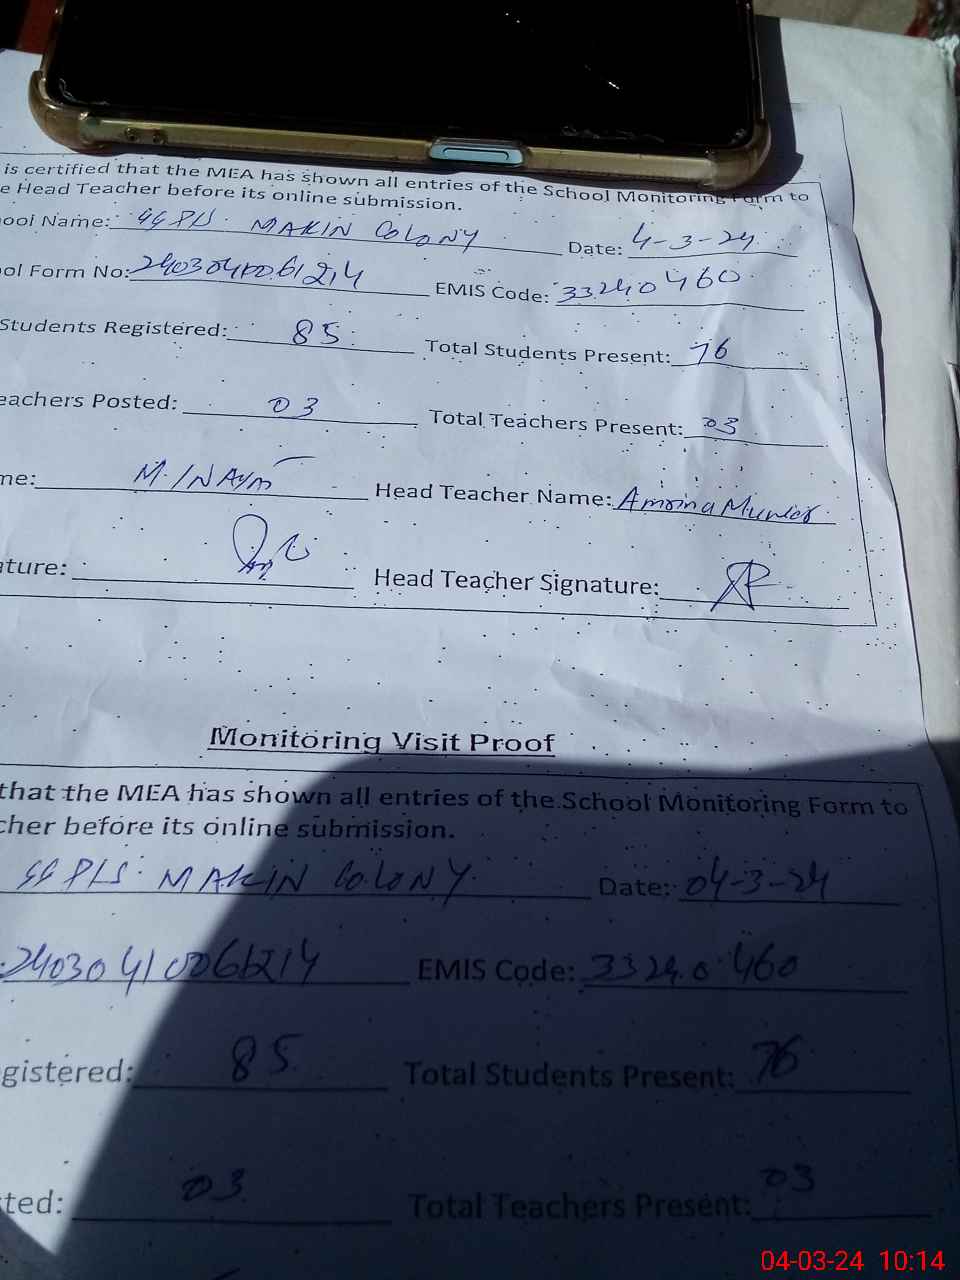 is certified that the MEA has shown all entries of the School Monitoring Form to
e Head Teacher before its online submission.
ool Name: GGPLS. MAKIN COLONY Date: 4-3-24
ol Form No: EMIS Code: 33240460
Students Registered: 85 Total Students Present: 76
eachers Posted: 03 Total Teachers Present: 03
me: M. Head Teacher Name: Amina
ature: Head Teacher Signature:
Monitoring Visit Proof
that the MEA has shown all entries of the School Monitoring Form to
cher before its online submission.
MAKIN COLONY Date: 04-3-24
EMIS Code: 33240460
gistered: 85 Total Students Present: 76
sted: 03 Total Teachers Present: 03
04-03-24 10:14